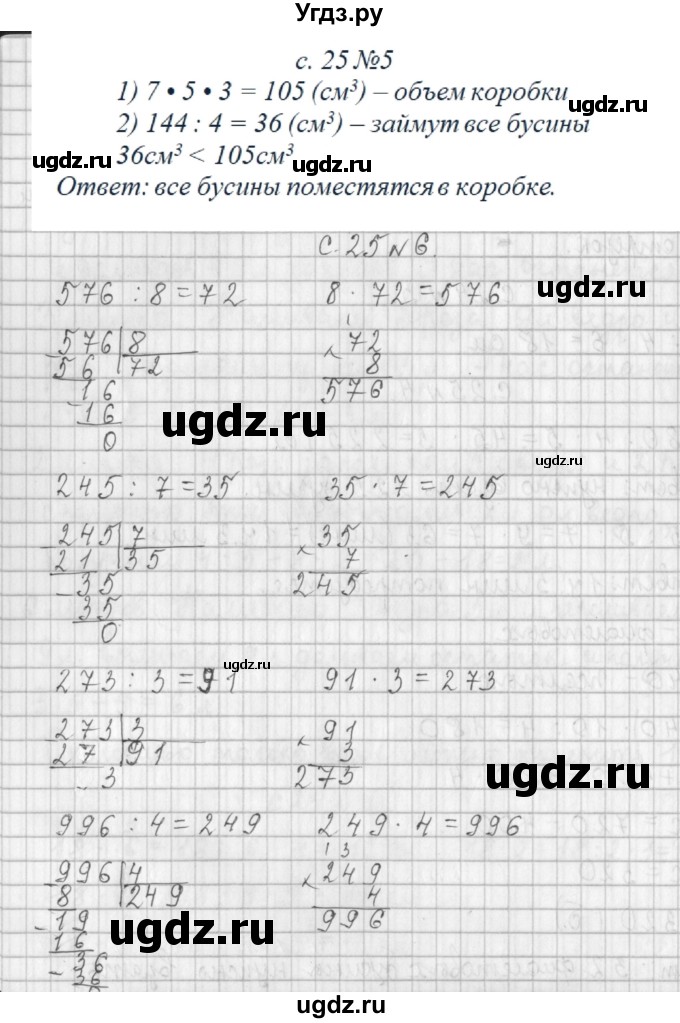 Угдз.ру
с. 25 №5
1) 7 • 5 • 3 = 105 (см³) – объем коробки
2) 144 : 4 = 36 (см³) – займут все бусины
36см³ < 105см³
ugdz.ru
Ответ: все бусины поместятся в коробке.
с. 25 №6.
576 : 8 = 72 8 · 72 = 576
ugdz.ru
576 8
56 72
16
16
0
1
× 72
8
576
ugdz.ru
ugdz.ru
245 : 7 = 35 35 · 7 = 245
245 7
21 35
35
35
0
× 35
7
245
ugdz.ru
273 : 3 = 91 91 · 3 = 273
273 3
27 91
3
× 91
3
273
ugdz.ru
996 : 4 = 249 249 · 4 = 996
996 4
8 249
19
16
36
36
0
1 3
× 249
4
996
ugdz.ru
ugdz.ru
ugdz.ru